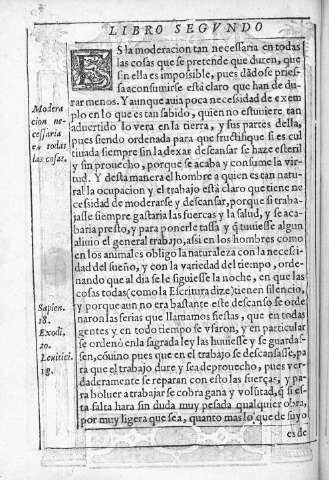 LIBRO SEGVNDO
ES la moderacion tan necessaria en todas
las cosas que se pretende que duren, que
sin ella es impossible, pues dãdose pries-
sa a consumirse està claro que han de du-
rar menos. Y aunque auia poca necesidad de exem
plo en lo que es tan sabido, quien no estuuiere tan
aduertido lo vera en la tierra, y sus partes della,
pues siendo ordenada para que fructifique si es cul
tiuada siempre sin la dexar descansar se haze esteril
y sin prouecho, porque se acaba y consume la vir-
tud. Y desta manera el hombre a quien es tan natu-
ral la ocupacion y el trabajo està claro que tiene ne
cesidad de moderarse y descansar, porque si traba-
jasse siempre gastaria las fuercas y la salud, y se aca-
baria presto, y para ponerle tassa y q̃ tuuiesse algun
aliuio el general trabajo, assi en los hombres como
en los animales obligo la naturaleza con la necesi-
dad del sueño, y con la variedad del tiempo, orde-
nando que al dia se le siguiesse la noche, en que las
cosas todas (como la Escritura dize) tienen silencio,
y porque aun no era bastante este descanso se orde
naron las ferias que llamamos fiestas, que en todas
gentes y en todo tiempo se vsaron, y en particular
se ordenò en la sagrada ley las huuiesse y se guardas-
sen, cõuino pues que en el trabajo se descansasse, pa
ra que el trabajo dure y sea de prouecho, pues ver-
daderamente se reparan con esto las fuerças, y pa-
ra boluer a trabajar se cobra gana y volũtad, q̃ si es-
ta falta hara sin duda muy pesada qualquier obra,
por muy ligera que sea, quanto mas lo que de suyo
es de
Modera
cion ne-
cessaria
en todas
las cosas.
Sapien.
18.
Exodi.
20.
Leuitici.
18.